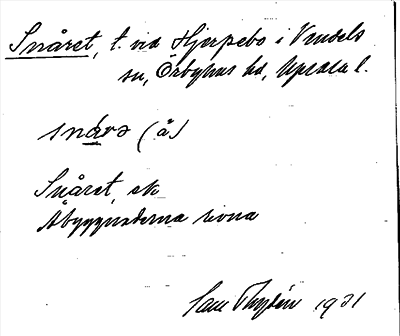 Snåret, t. vid Hjerpebo i Vendels
sn, Örbyhus hd, Uppsala l.
snårə (å)
Snåret, ek
Åbyggnaderna rivna
1931